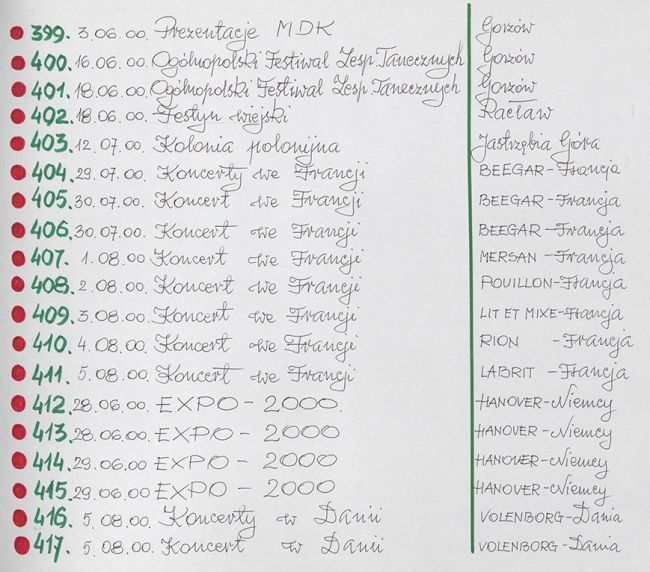 399. 3.06.00. Prezentacje MDK Gorzów
400. 16.06.00. Ogólnopolski Festiwal Zesp. Tanecznych Gorzów
401. 18.06.00. Ogólnopolski Festiwal Zesp. Tanecznych Gorzów
402. 18.06.00. Festyn wiejski Racław
403. 12.07.00. Kolonia polonijna Jastrzębia Góra
404. 29.07.00. Koncerty we Francji BEEGAR-Francja
405. 30.07.00. Koncert we Francji BEEGAR-Francja
406. 30.07.00. Koncert we Francji BEEGAR-Francja
407. 1.08.00. Koncert we Francji MERSAN-Francja
408. 2.08.00. Koncert we Francji POUILLON-Francja
409. 3.08.00. Koncert we Francji LIT ET MIXE-Francja
410. 4.08.00. Koncert we Francji RION -Francja
411. 5.08.00. Koncert we Francji LABRIT-Francja
412. 28.06.00. EXPO-2000. HANOVER-Niemcy
413. 28.06.00. EXPO-2000 HANOVER-Niemcy
414. 29.06.00 EXPO-2000 HANOVER-Niemcy
415. 29.06.00 EXPO-2000 HANOVER-Niemcy
416. 5.08.00. Koncerty w Danii VOLENBORG-Dania
417. 5.08.00. Koncert w Danii VOLENBORG-Dania